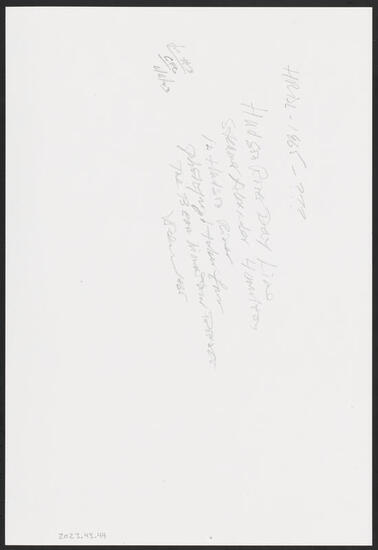 HRDL - 1965 - ???
Hudson River Day Line
Steamer Alexander Hamilton
in Hudson River
photograph taken from
The Bear Mountain
1965
#2
2023.43.44